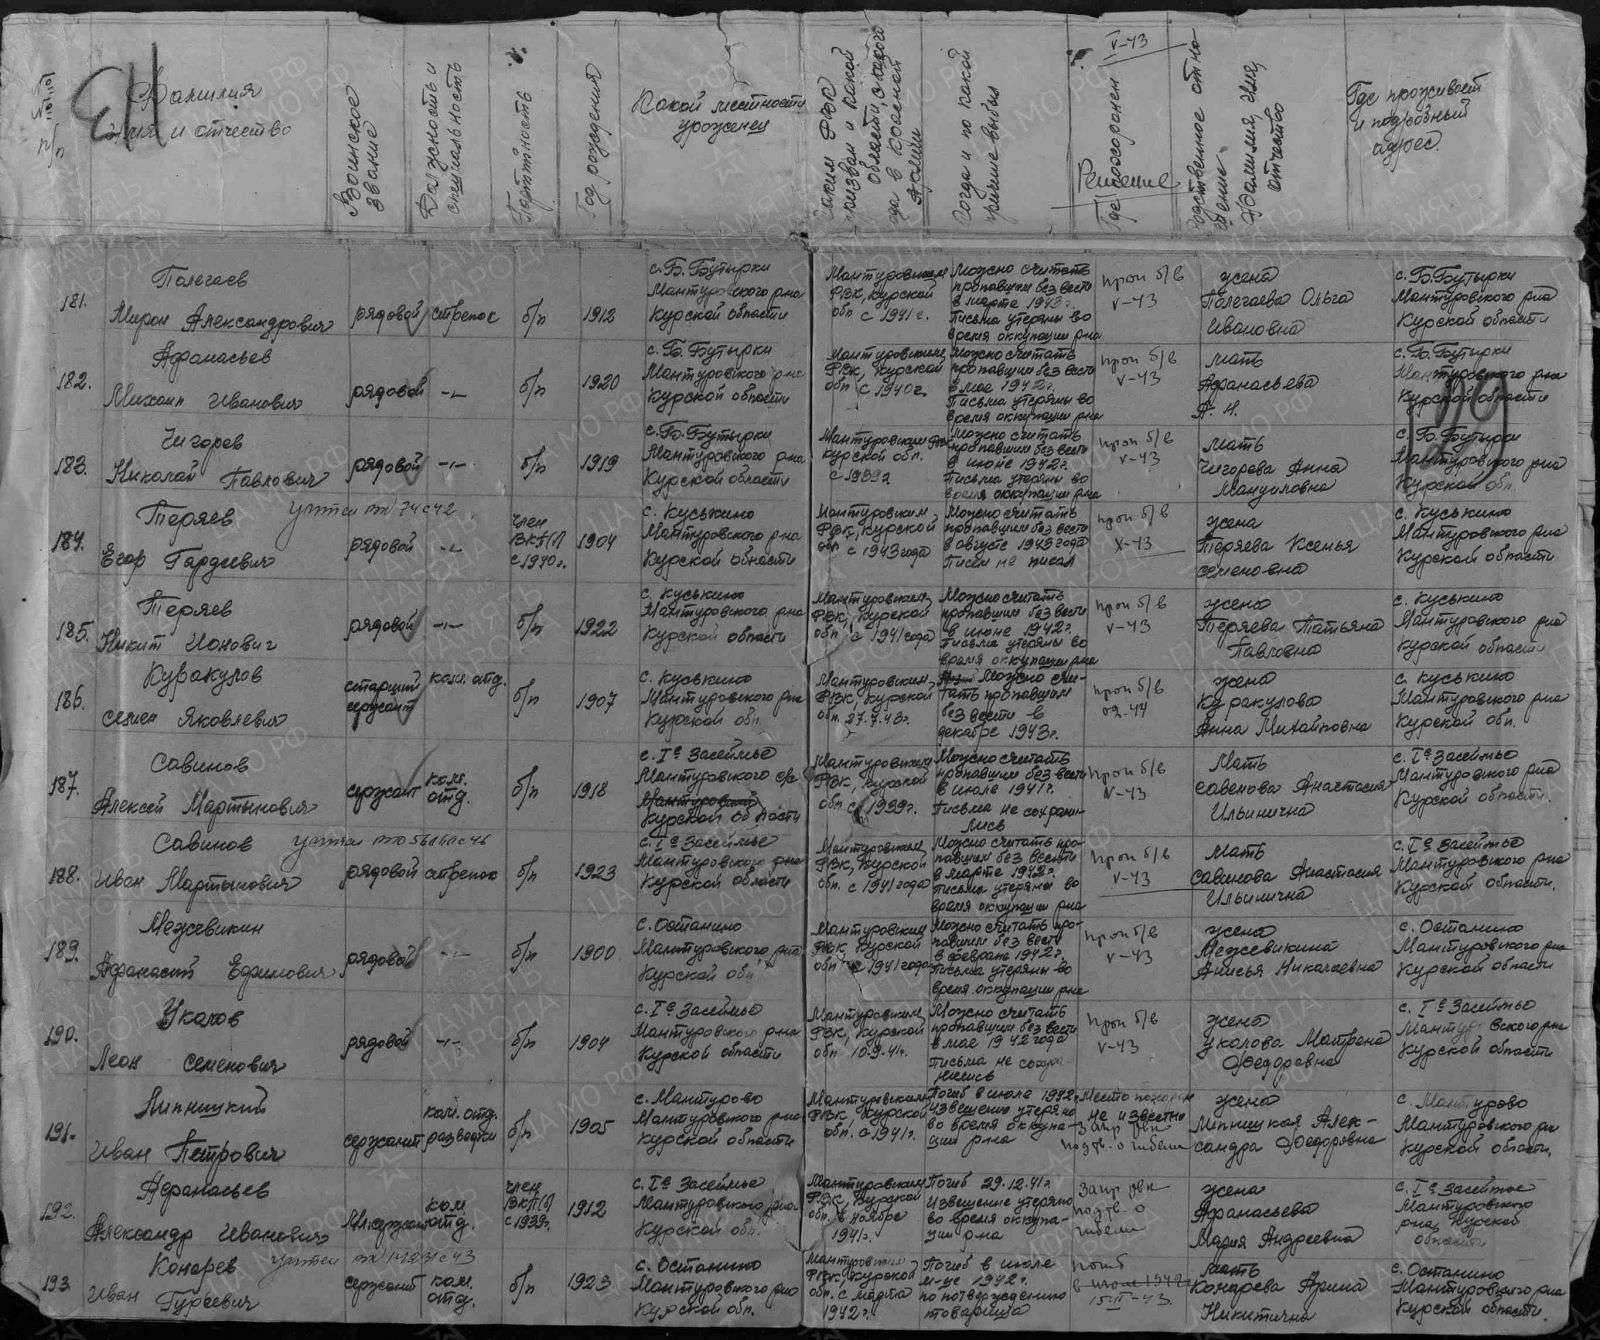 №№
п/п
Фамилия
имя и отчество
Воинское
звание
Должность и
специальность
Партийность
Год рождения
Какой местности
уроженец
Каким РВК
призван и какой
области, с какого
года в Красной
Армии
Когда и по какой
причине выбыл
V-43
Решение
Где похоронен
Родственное отно
шение.
Фамилия, Имя,
отчество
Где проживает
и подробный
адрес.
181.
Полегаев
Мирон Александрович
рядовой
стрелок
б/п
1912
с. Б. Бутырки
Мантуровского р-на
Курской области
Мантуровским
РВК, Курской
обл. с 1941 г.
Можно считать
пропавшим без вести
в марте 1943 г.
Письма утеряны во
время оккупации р-на
проп б/в
V-43
жена
Полегаева Ольга
Ивановна
с. Б. Бутырки
Мантуровского р-на
Курской области
182.
Афанасьев
Михаил Иванович
рядовой
-"-
б/п
1920
с. Б. Бутырки
Мантуровского р-на
Курской области
Мантуровским
РВК, Курской
обл. с 1940 г.
Можно считать
пропавшим без вести
в мае 1942 г.
Письма утеряны во
время оккупации р-на
проп б/в
V-43
мать
Афанасьева
с. Б. Бутырки
Мантуровского р-на
Курской области
183.
Чигорев
Николай Павлович
рядовой
-"-
б/п
1919
с. Б. Бутырки
Мантуровского р-на
Курской области
Мантуровским РВК
Курской обл.
с 1939 г
Можно считать
пропавшим без вести
в июне 1942 г.
Письма утеряны во
время оккупации р-на
проп б/в
V-43
мать
Чигорева Анна
Мануиловна
с. Б. Бутырки
Мантуровского р-на
Курской обл.
184.
Теряев
Егор Гордеевич
рядовой
-"-
член
ВКП(б)
с 1940 г.
1904
с. Куськино
Мантуровского р-на
Курской области
Мантуровским
РВК, Курской
обл. с 1943 года
Можно считать
пропавшим без вести
в августе 1943 года
Писем не писал
проп б/в
X-43
жена
Теряева Ксенья
Семеновна
с. Куськино
Мантуровского р-на
Курской области
185.
Теряев
Никит Ионович
рядовой
-"-
б/п
1922
с. Куськино
Мантуровского р-на
Курской области
Мантуровским
РВК, Курской
обл. с 1941 года
Можно считать
пропавшим без вести
в июне 1942 г.
Письма утеряны во
время оккупации р-на
проп б/в
V-43
жена
Теряева Татьяна
Павловна
с. Куськино
Мантуровского р-на
Курской области
186.
Куракулов
Семен Яковлевич
старший
сержант
ком. отд.
б/п
1907
с. Куськино
Мантуровского р-на
Курской обл.
Мантуровским
РВК, Курской
Можно счи-
тать пропавшим
без вести в
декабре 1943 г.
проп б/в
02-44
жена
Куракулова
Анна Михайловна
с. Куськино
Мантуровского р-на
Курской обл.
187.
Савинов
Алексей Мартынович
сержант
ком.
отд.
б/п
1918
с. Iе Засеймье
Мантуровского
Курской области
Мантуровским
РВК, Курской
обл. с 1939 г.
Можно считать
пропавшим без вести
в июле 1941 г.
Письма не сохрани-
лись
проп б/в
V-43
Мать
Савенова Анастасия
Ильинична
с. Iе Засеймье
Мантуровского р-на
Курской области.
188.
Савинов
Иван Мартынович
рядовой
стрелок
б/п
1923
с. Iе Засеймье
Мантуровского р-на
Курской области
Мантуровским
РВК, Курской
обл. с 1941 года
Можно считать про-
павшим без вести
в марте 1942 г.
Письма утеряны во
время оккупации р-на
проп б/в
V-43
Мать
Савинова Анастасия
Ильинична
с. Iе Засеймье
Мантуровского р-на
Курской области.
189.
Межевикин
Афанасий Ефимович
рядовой
-"-
б/п
1900
с. Останино
Мантуровского р-на
Курской обл.
Мантуровским
РВК, Курской
обл. с 1941 года
Можно считать про-
павшим без вести
в феврале 1942 г.
Письма утеряны во
время оккупации р-на
проп б/в
V-43
жена
Межевикина
Анисья Николаевна
с. Останино
Мантуровского р-на
Курской области
190.
Уколов
Леон Семенович
рядовой
-"-
б/п
1904
с. Iе Засеймье
Мантуровского р-на
Курской области
Мантуровским
РВК, Курской
обл. 10.9.41 г.
Можно считать
пропавшим без вести
в мае 1942 года
Письма не сохра-
нились
проп б/в
V-43
жена
Уколова Матрена
Федоровна
с. Iе Засеймье
Мантуровского р-на
Курской области
191.
Липницкий
Иван Петрович
сержант
ком. отд.
разведки
б/п
1905
с. Мантурово
Мантуровского р-на
Курской области
Мантуровским
РВК, Курской
обл. с 1941 г.
Погиб в июле 1942
Извещение утеряно
во время оккупа-
ции р-на
Место похорон
не известно
Запр. рвк
подт. о гибели
жена
Липницкая Алек-
сандра Федоровна
с. Мантурово
Мантуровского р-на
Курской области.
192.
Афанасьев
Александр Иванович
Мл. сержант
ком.
отд.
член
ВКП(б)
с 1939 г.
1912
с. Iе Засеймье
Мантуровского р-на
Курской обл.
Мантуровским
РВК, Курской
обл. в ноябре
1941 г.
Погиб 29.12.41 г.
Извещение утеряно
во время оккупа-
ции р-на
Запр. рвк
подт. о
гибели
жена
Афанасьева
Мария Андреевна
с. Iе Засеймье
Мантуровского
р-на, Курской
области
193.
Конарев
Иван Гурьевич
сержант
ком.
отд.
б/п
1923
с. Останино
Мантуровского р-на
Курской обл.
Мантуровским
РВК, Курской
обл. с марта
1942 г.
Погиб в июле
м-це 1942 г.
по потверждению
товарища
погиб
в июле 1942
Мать
Конарева Арина
Никитична
с. Останино
Мантуровского р-на
Курской области.
ПАМЯТЬ
НАРОДА
ЦА МО РФ